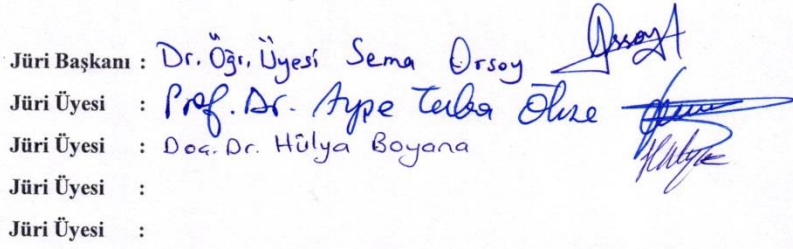 Jüri Başkanı : Dr. Öğr. Üyesi Sema Orsoy
Jüri Üyesi : Prof. Dr. Ayşe Tuba Ökse
Jüri Üyesi : Doç. Dr. Hülya Boyana
Jüri Üyesi :
Jüri Üyesi :